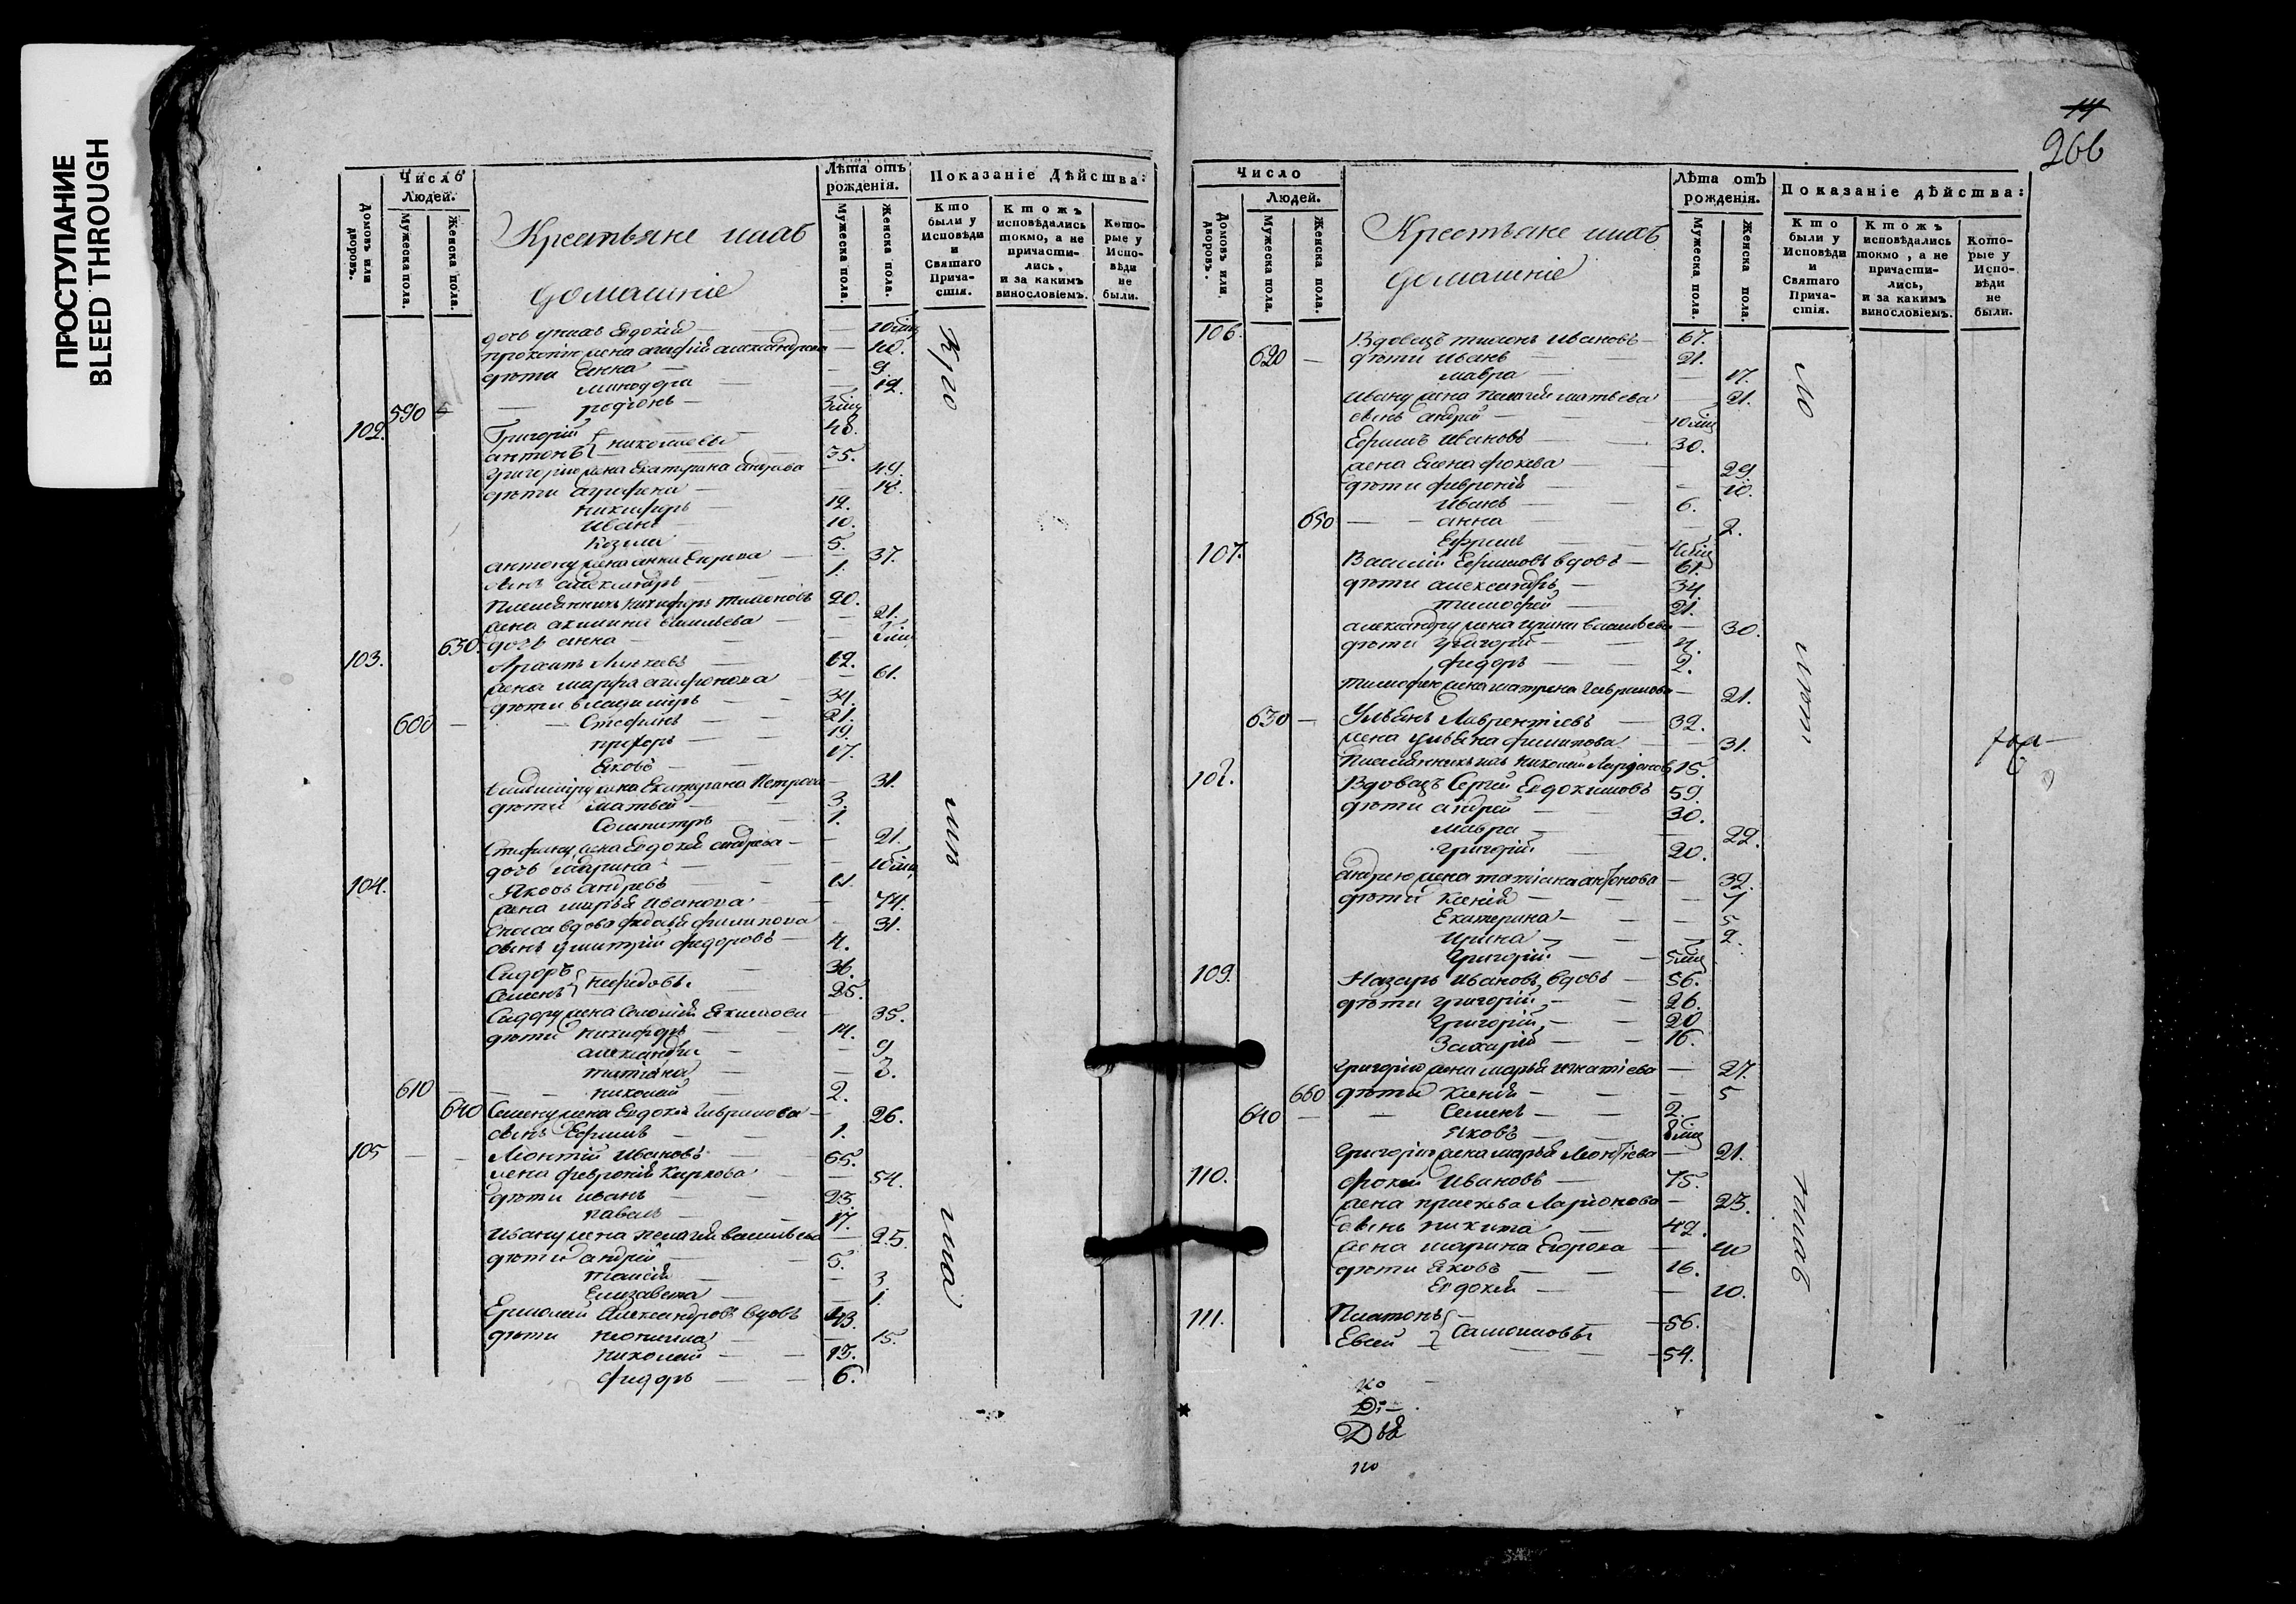 ПРОСТУПАНИЕ
BLEED THROUGH
Число
Людей.
Лѣта отъ рожденія.
Показаніе Дѣйства:
Домовъ или дворовъ.
Мужеска пола.
Женска пола.
Крестьяне
домашніе
Мужеска пола.
Женска пола.
Кто были у Исповѣди и Святаго Причастія.
Ктожъ исповѣдались токмо, а не причастились, и за какимъ винословіемъ.
Которые у Исповѣди не были.
дочь у нихъ Евдокія
жена агафія александрова
дѣти Анна 9
минодора 12.
590 родіонъ
102. Григорій 48.
антонъ николаевы 35.
Григорію жена Екатерина андреева 49.
дѣти агрифена 18.
никифоръ 12.
Иванъ 10.
Козма 5.
антону жена анна 37.
сынъ александръ 1.
Племянникъ никифоръ тимоновъ 20.
жена акилина васильева 21.
630. дочь анна
103. 62.
жена марфа агафонова 61.
дѣти владиміръ 34.
600 Стефанъ 21.
прохоръ 19.
Яковъ 17.
жена Екатерина Петрова 31.
дѣти матвей 3.
1.
Стефану жена Евдокія андреева 21.
дочь марина
104. Яковъ андреевъ
жена марья Иванова 74.
вдова филипова 31.
сынъ дмитрій федоровъ 4.
Сидоръ 36.
Семенъ нефедовы 25.
Сидору жена Соломія Якимова 35.
дѣти никифоръ 14.
александра 9
татіана 3.
610 николай 2.
640 Семену жена Евдокія гаврилова 26.
сынъ Ефимъ 1.
105 Леонтій Ивановъ 65.
жена февронія Карпова 54.
дѣти иванъ 23
павелъ 17.
Ивану жена пелагія васильева 25.
дѣти андрей 5.
таисія 3.
Елизавета 1.
Ермолай Александровъ вдовъ 43.
дѣти 15.
николай 13.
федоръ 6.
14
266
Число
Людей.
Лѣта отъ рожденія.
Показаніе дѣйства:
Домовъ или дворовъ.
Мужеска пола.
Женска пола.
Крестьяне
домашніе
Мужеска пола.
Женска пола.
Кто были у Исповѣди и Святаго Причастія.
Ктожъ исповѣдались токмо, а не причастились, и за какимъ винословіемъ.
Которые у Исповѣди не были.
106. Вдовецъ тимонъ Ивановъ 67.
620 дѣти Иванъ 21.
мавра 17.
Ивану жена Пелагія матвеева 21.
сынъ андрей
Ефимъ Ивановъ 30.
жена Елена фокеева 29
дѣти февронія 10.
Иванъ 6.
650 анна 2.
Ефимъ
107. Василій Ефимовъ вдовъ 61.
дѣти александръ 34
тимофей 21.
александру жена ирина васильева 30.
дѣти григорій
федоръ 2.
Тимофею жена матрена гаврилова 21.
630 Ульянъ Лаврентіевъ 32.
жена ульяна филипова 31.
Племянникъ ихъ николай Ларіоновъ 15.
108. Вдовецъ Сергей Евдокимовъ 59.
дѣти андрей 30.
Мавра 22.
григорій 20.
андрею жена татіана антонова 32.
дѣти Ксенія 7
Екатерина 5
Ирина 2.
Григорій
109. Назаръ Ивановъ вдовъ 56.
дѣти григорій 26.
Григорій 20
Захарій 16.
Григорію жена марья игнатіева 27.
660 дѣти Ксенія 5
640 Семенъ 2.
Яковъ
Григорію жена марья Леонтіева 21.
110. фокей Ивановъ 75.
жена прасковья Ларіонова 23.
сынъ никита 42.
жена марина Егорова 40
дѣти Яковъ 16.
Евдокія 10.
111. Платонъ 56.
Евсей Самоиловы 54.